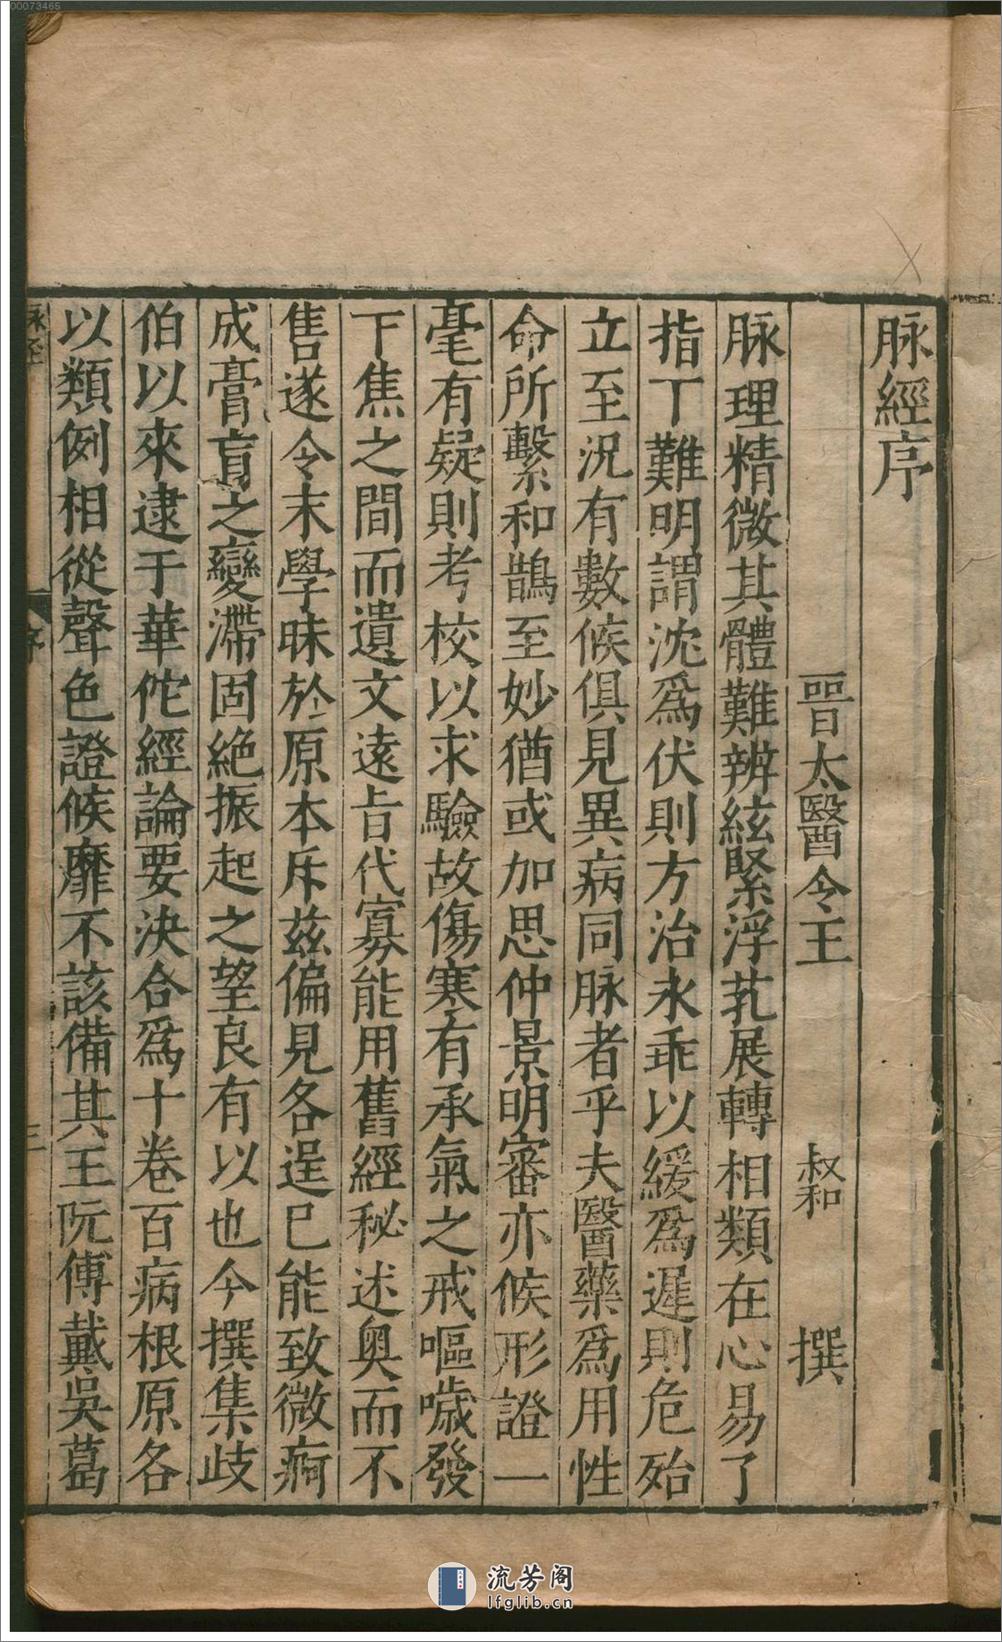 脉經序
晉太醫令王 叔和 撰
脉理精微其體難辨絃緊浮芤展轉相類在心易了
指下難明謂沈爲伏則方治永乖以緩爲遲則危殆
立至況有數候俱見異病同脉者乎夫醫藥爲用性
命所繫和鵲至妙猶或加思仲景明審亦候形證一
毫有疑則考校以求驗故傷寒有承氣之戒嘔噦發
下焦之間而遺文遠旨代寡能用舊經秘述奥而不
售遂令末學昧於原本斥兹偏見各逞已能致微痾
成膏肓之變滯固絶振起之望良有以也今撰集歧
伯以來逮于華佗經論要决合爲十卷百病根原各
以類例相從聲色證候靡不該備其王阮傅戴吳葛
脉經
序
三
00073465
流芳阁
lfglib.cn